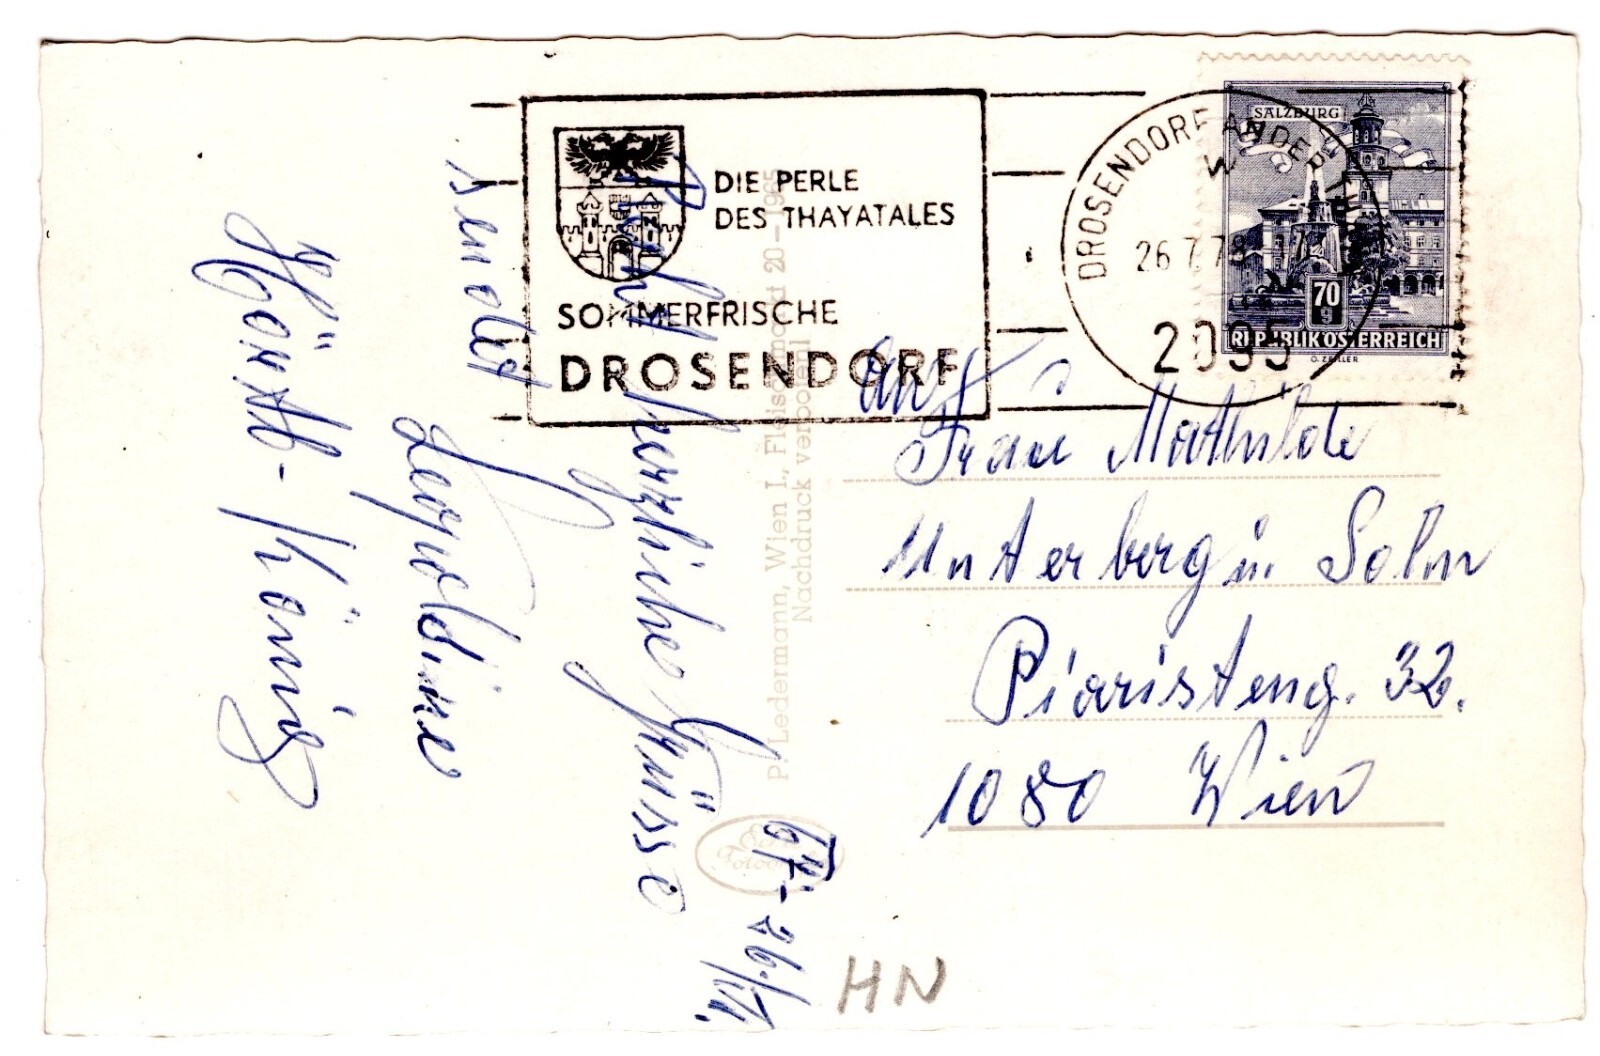 DIE PERLE
DES THAYATALES
SOMMERFRISCHE
DROSENDORF
DROSENDORF AN DER THAYA
26.7.78
2095
SALZBURG
70
g
REPUBLIK ÖSTERREICH
O. ZEILER
P. Ledermann, Wien I., Fleischmarkt 20—1965
Nachdruck verboten!
Recht
herzliche Grüsse
sendet
Leopoldine
König
26./VII.
An
Frau Mathilde
Unterberg u. Solm
Piaristeng. 32.
1080 Wien
HN